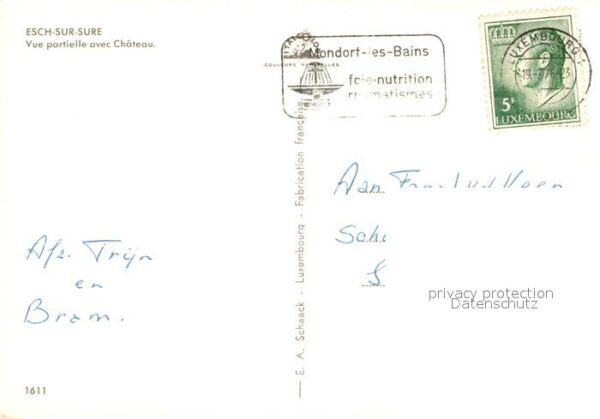 ESCH-SUR-SURE
Vue partielle avec Château.
COULEURS NATURELLES
Mondorf-les-Bains
foie-nutrition
rhumatismes
LUXEMBOURG
5F
LUXEMBOURG
E. A. Schaack - Luxembourg - Fabrication française
Aan Fam
Afz. Trijn
en
Bram.
privacy protection
Datenschutz
1611